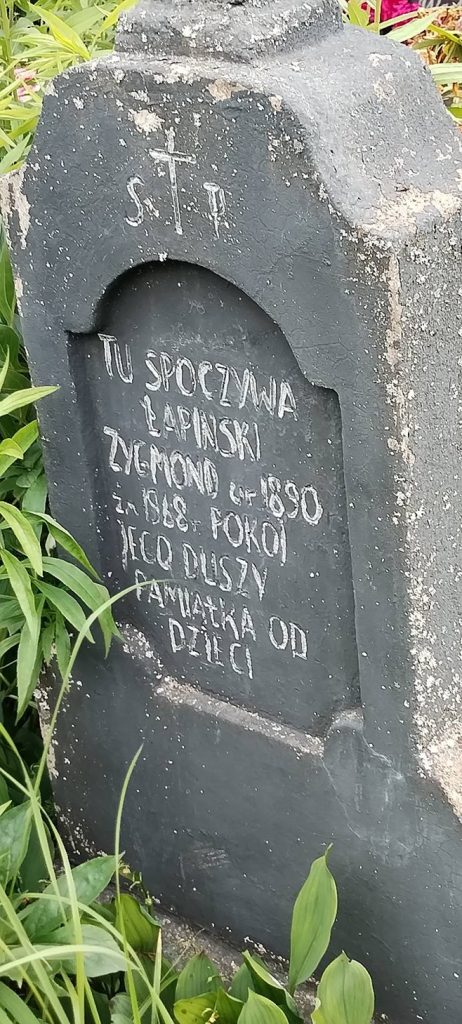 Ś. P.
TU SPOCZYWA
ŁAPIŃSKI
ZYGMOND ur 1890
zm 1968 r POKÓJ
JEGO DUSZY
PAMIĄTKA OD
DZIECI